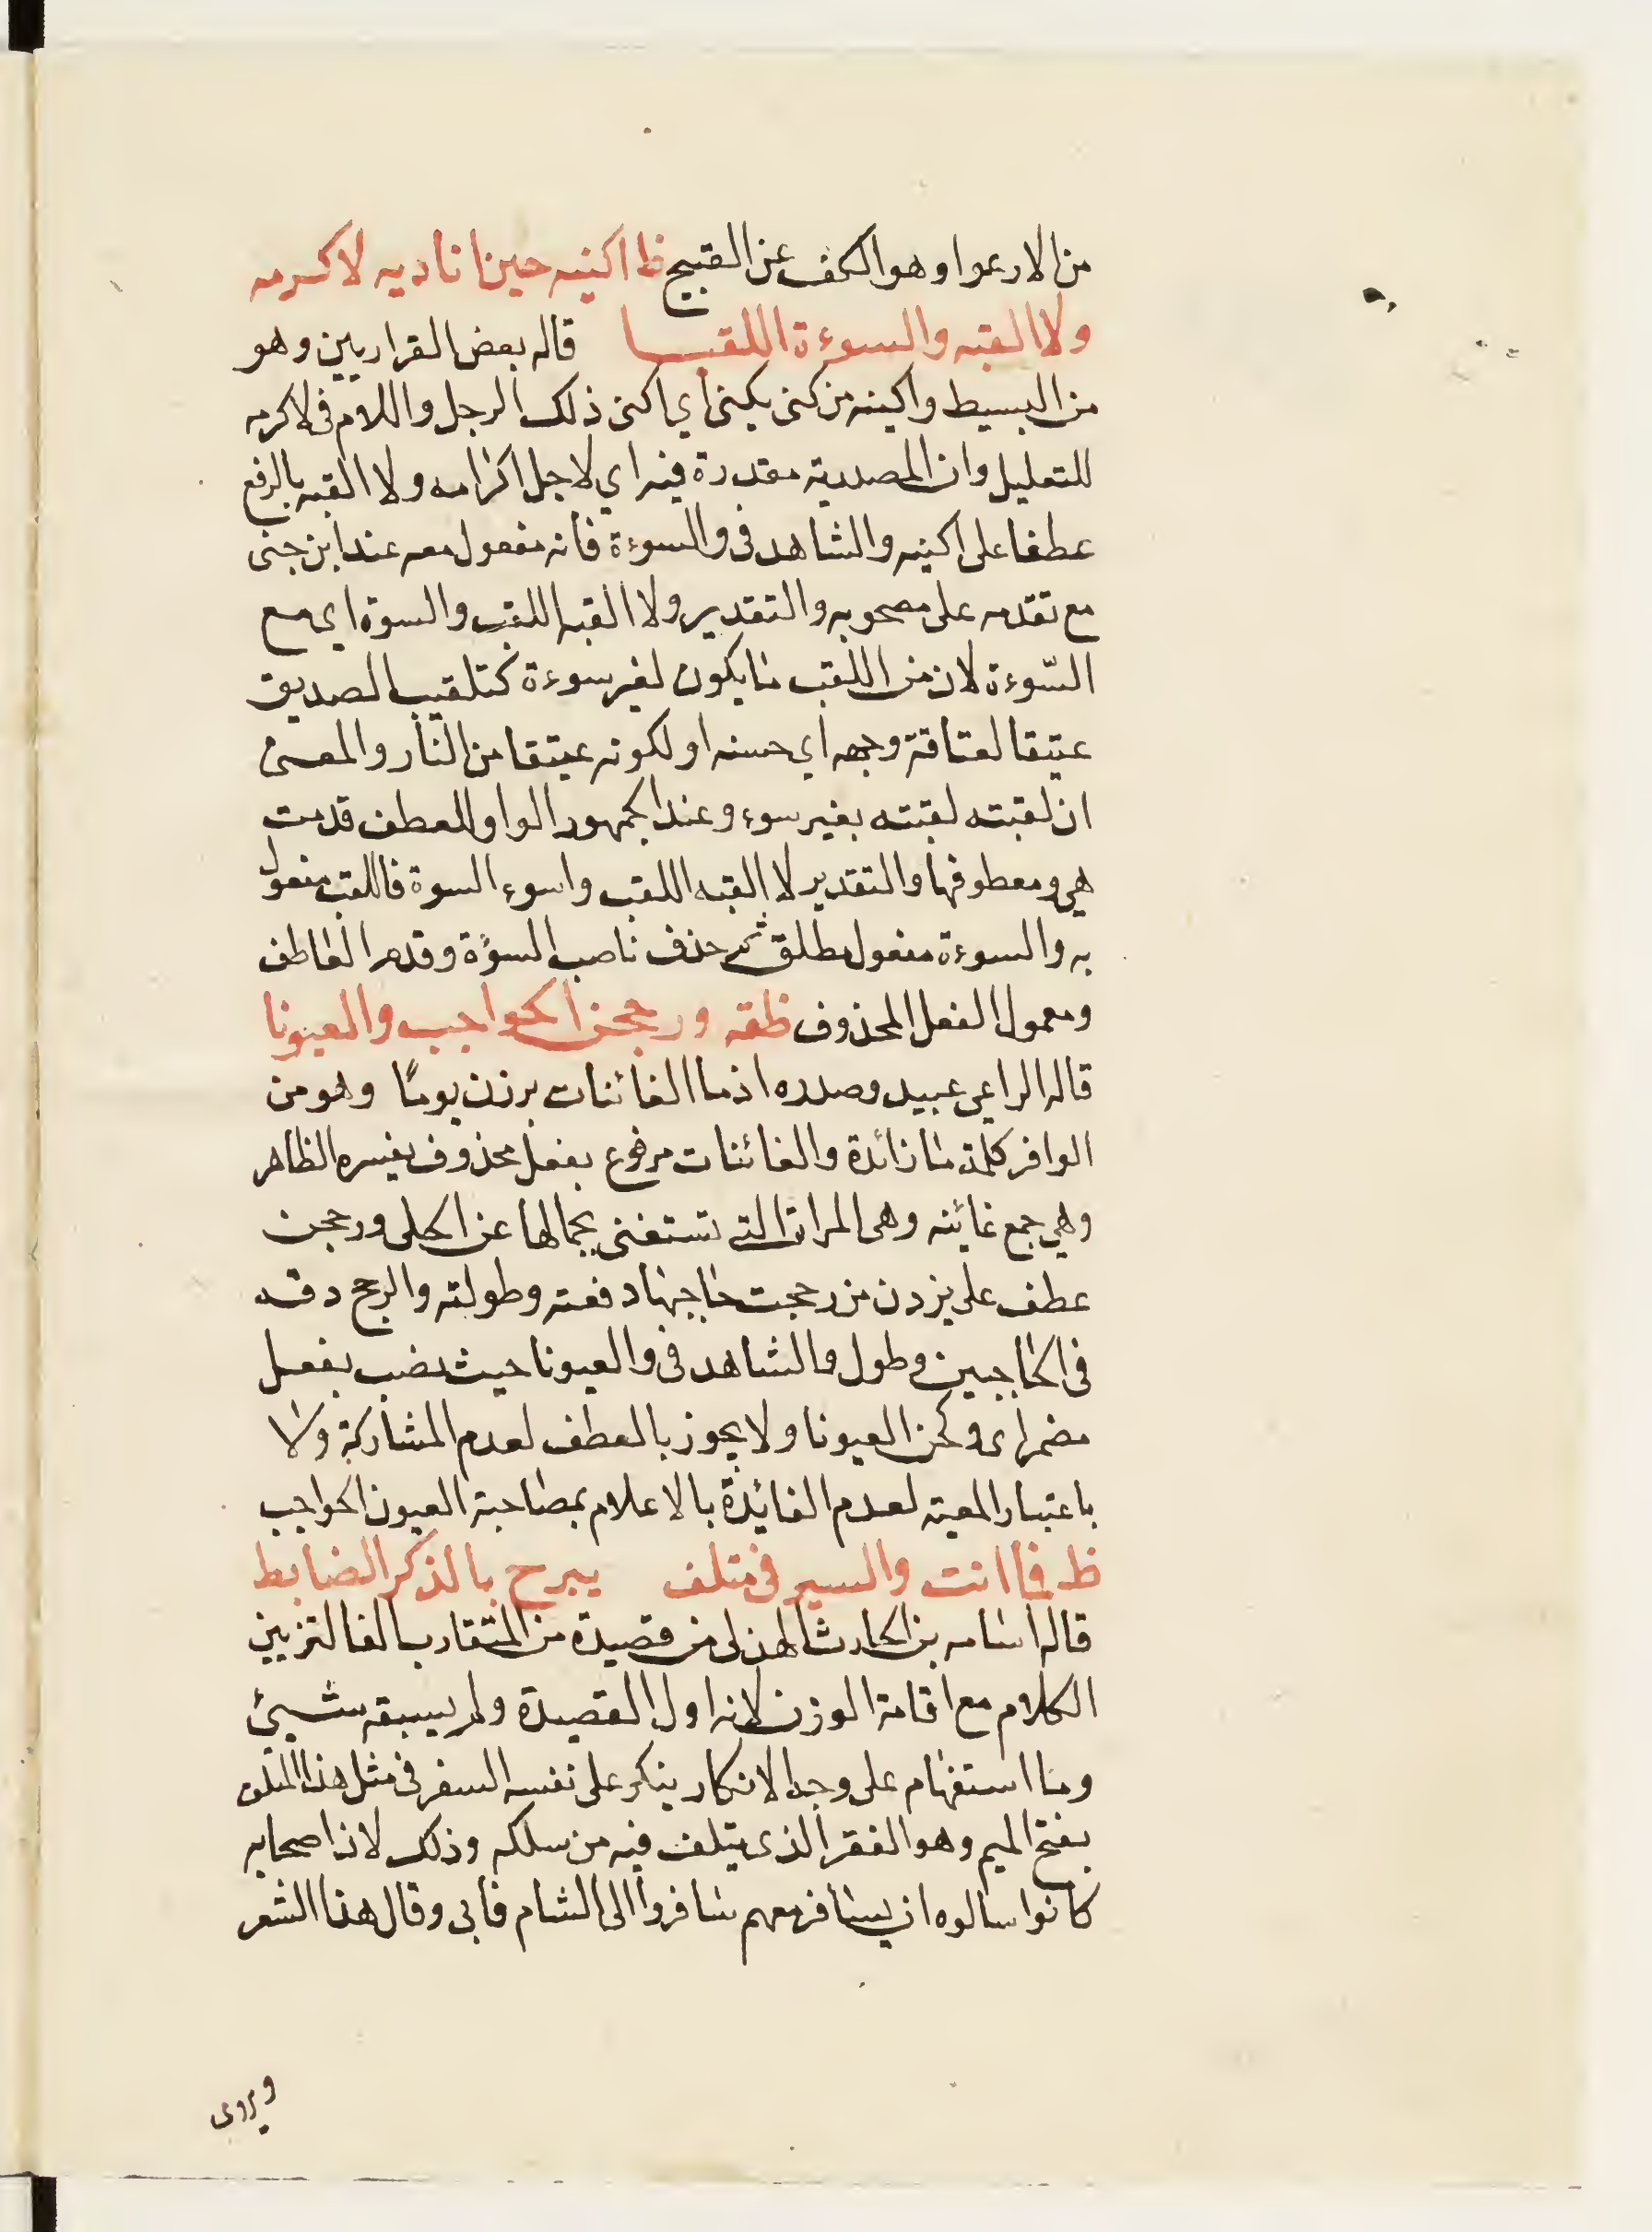 من الارعوا وهو الكف عن القبيح ظ اكنيه حين اناديه لاكرمه
ولا القبه والسوءة اللقبا قاله بعض الفزاريين وهو
من البسيط واكينه من كنى يكنى اي اكنى ذلك الرجل واللام في لاكرمه
للتعليل وان المصدرية مقدرة فيه اي لاجل اكرامه ولا القبه بالرفع
عطفا على اكنيه والشاهد في والسوءة فانه مفعول معه عند ابن جنى
مع تقدمه على مصحوبه والتقدير ولا القبه اللقب والسوة اي مع
السّوءة لان من اللقب ما يكون لغير سوءة كتلقيب الصديق
عتيقا لعتاقة وجهه اي حسنه او لكونه عتيقا من النار والمعنى
ان لقبته لقبته بغير سوء وعند الجمهور الواو للعطف قدمت
هي ومعطوفها والتقدير لا القبه اللقب واسوء السوة فاللقب مفعول
به والسوءة مفعول مطلق ثم حذف ناصب السوءة وقدم العاطف
ومعمول الفعل المحذوف ظقه وزججن الحواجب والعيونا
قاله الراعي عبيد وصدره اذ ما الغائنات برزن يومًا وهو من
الوافر كلمة ما زائدة والغائنات مرفوع بفعل محذوف يفسره الظاهر
وهي جمع غائنه وهي المراة التي تستغنى بجمالها عن الحلى وزججن
عطف على بزدن من زججت حاجبها دقته وطولته والزجج دقه
في الحاجبين وطول والشاهد في والعيونا حيث نصب بفعل
مضمر اى وكحن العيونا ولا يجوز بالعطف لعدم المشاركة ولا
باعتبار المعية لعدم الفائدة بالاعلام بمصاحبة العيون الحواجب
ظ فا انت والسير في متلف يبرح بالذكر الضابط
قاله اسامه بن الحارث الهذلى من قصيدة من المتقارب الفا لتزيين
الكلام مع اقامة الوزن لانه اول القصيدة ولم يسبقه شيئ
وما استفهام على وجه الانكار ينكر على نفسه السفر في مثل هذا المتلف
بفتح الميم وهو القفر الذى يتلف فيه من سلكه وذلك لان اصحابه
كانوا سالوه ان يسافر معهم سافروا الى الشام فابى وقال هذا الشعر
ويروى